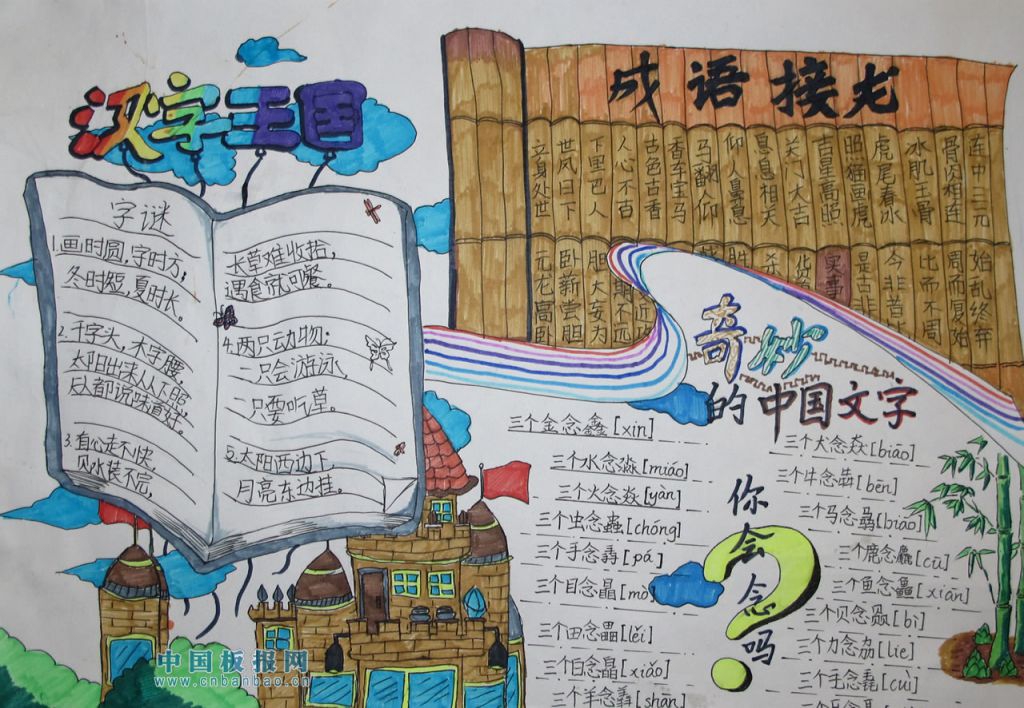 汉字王国
字谜
1.画时圆,字时方;
冬时短,夏时长。
2.千字头,木字腰,
太阳出来从下照,
人都说味道好。
3.有心走不快,
见水装不完,
长草难收拾,
遇食就可餐。
4.两只动物:
一只会游泳,
一只要听草。
5.太阳西边下,
月亮东边挂。
成语接龙
连中三元
骨肉相连
冰肌玉骨
虎尾春冰
照猫画虎
吉星高照
关门大吉
息息相关
仰人鼻息
马翻人仰
香车宝马
古色古香
人心不古
下里巴人
世风日下
立身处世
始乱终弃
周而复始
比而不周
卧新尝胆
胆大妄为
元龙高卧
奇妙
的中国文字
三个金念鑫[xin]
三个水念淼[miáo]
三个火念焱[yàn]
三个虫念蟲[chóng]
三个手念掱[pá]
三个目念瞐[mò]
三个田念畾[lěi]
三个白念皛[xiǎo]
三个羊念羴[shān]
你会念吗
三个犬念猋[biāo]
三个牛念犇[bēn]
三个马念骉[biāo]
三个鹿念麤[cū]
三个鱼念鱻[xiān]
三个贝念赑[bì]
三个力念劦[lie]
三个毛念毳[cuì]
中国板报网
www.cnbanbao.cn